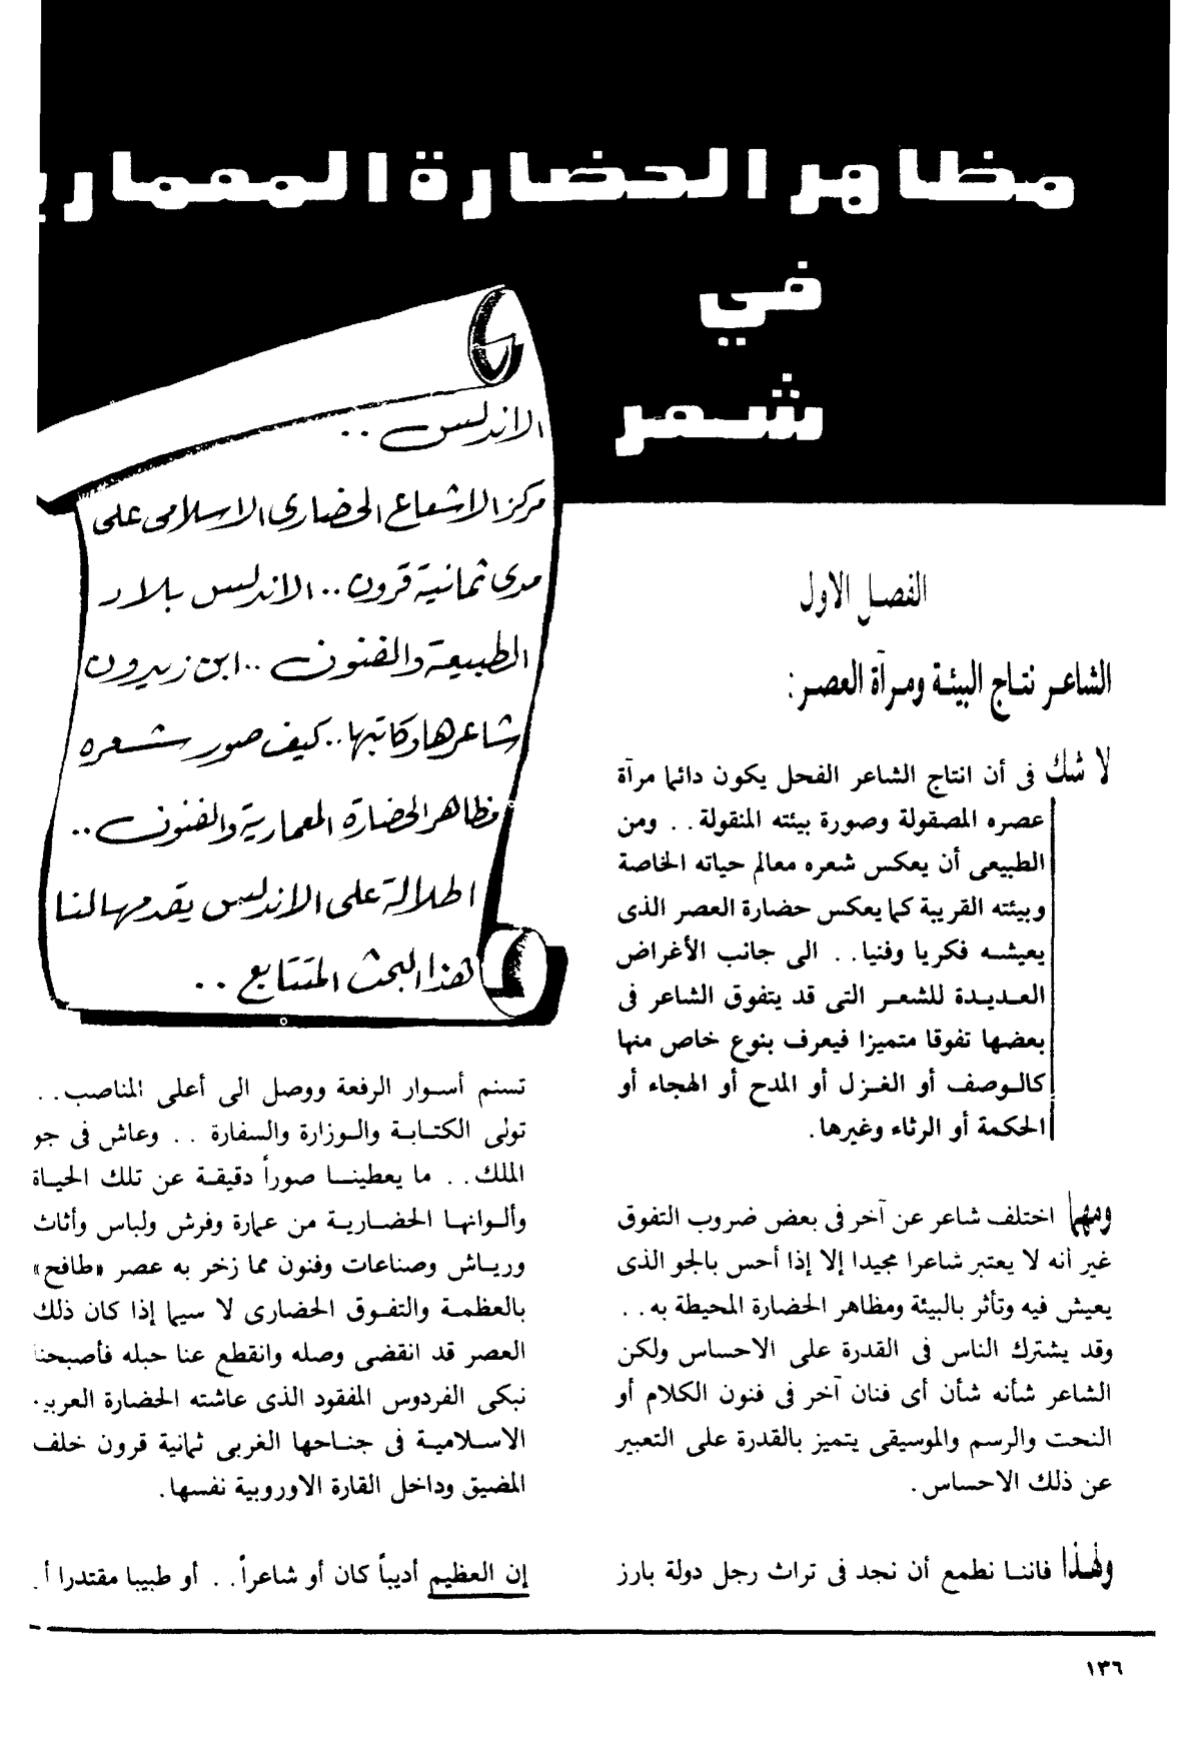 مظاهر الحضارة المعماري
في
شعر
الاندلس ..
مركز الاشعاع الحضارى الاسلامى على
مدى ثمانية قرون .. الاندلس بلاد
الطبيعة والفنون .. ابن زيدون
شاعرها وكاتبها .. كيف صور شعره
مظاهر الحضارة المعمارية والفنون ..
اطلالة على الاندلس يقدمها لنا
هذا البحث المتتابع ..
الفصل الاول
الشاعر نتاج البيئة ومرآة العصر:
لا شك فى أن انتاج الشاعر الفحل يكون دائما مرآة
عصره المصقولة وصورة بيئته المنقولة .. ومن
الطبيعى أن يعكس شعره معالم حياته الخاصة
وبيئته القريبة كما يعكس حضارة العصر الذى
يعيشه فكريا وفنيا .. الى جانب الأغراض
العديدة للشعر التى قد يتفوق الشاعر فى
بعضها تفوقا متميزا فيعرف بنوع خاص منها
كالوصف أو الغزل أو المدح أو الهجاء أو
الحكمة أو الرثاء وغيرها.
ومهما اختلف شاعر عن آخر فى بعض ضروب التفوق
غير أنه لا يعتبر شاعرا مجيدا إلا إذا أحس بالجو الذى
يعيش فيه وتأثر بالبيئة ومظاهر الحضارة المحيطة به ..
وقد يشترك الناس فى القدرة على الاحساس ولكن
الشاعر شأنه شأن أى فنان آخر فى فنون الكلام أو
النحت والرسم والموسيقى يتميز بالقدرة على التعبير
عن ذلك الاحساس.
ولهذا فاننا نطمع أن نجد فى تراث رجل دولة بارز
تسنم أسوار الرفعة ووصل الى أعلى المناصب ..
تولى الكتابة والوزارة والسفارة .. وعاش فى جو
الملك .. ما يعطينا صوراً دقيقة عن تلك الحياة
وألوانها الحضارية من عمارة وفرش ولباس وأثاث
ورياش وصناعات وفنون مما زخر به عصر «طافح»
بالعظمة والتفوق الحضارى لا سيما إذا كان ذلك
العصر قد انقضى وصله وانقطع عنا حبله فأصبحنا
نبكى الفردوس المفقود الذى عاشته الحضارة العربي
الاسلامية فى جناحها الغربى ثمانية قرون خلف
المضيق وداخل القارة الاوروبية نفسها.
إن العظيم أديباً كان أو شاعراً .. أو طبيبا مقتدرا أ
١٣٦